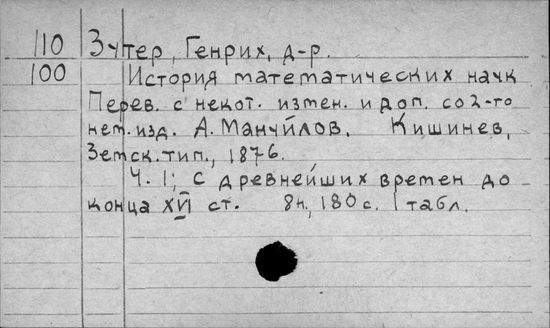 110 Зутер, Генрих, д-р.
100 История математических наук
Перев. с некот. измен. и доп. со 2-го
нем. изд. А. Мануйлов. Кишинев,
Земск. тип., 1876.
Ч. 1; с древнейших времен до
конца XVI ст. 8н., 180 с. 1 табл.